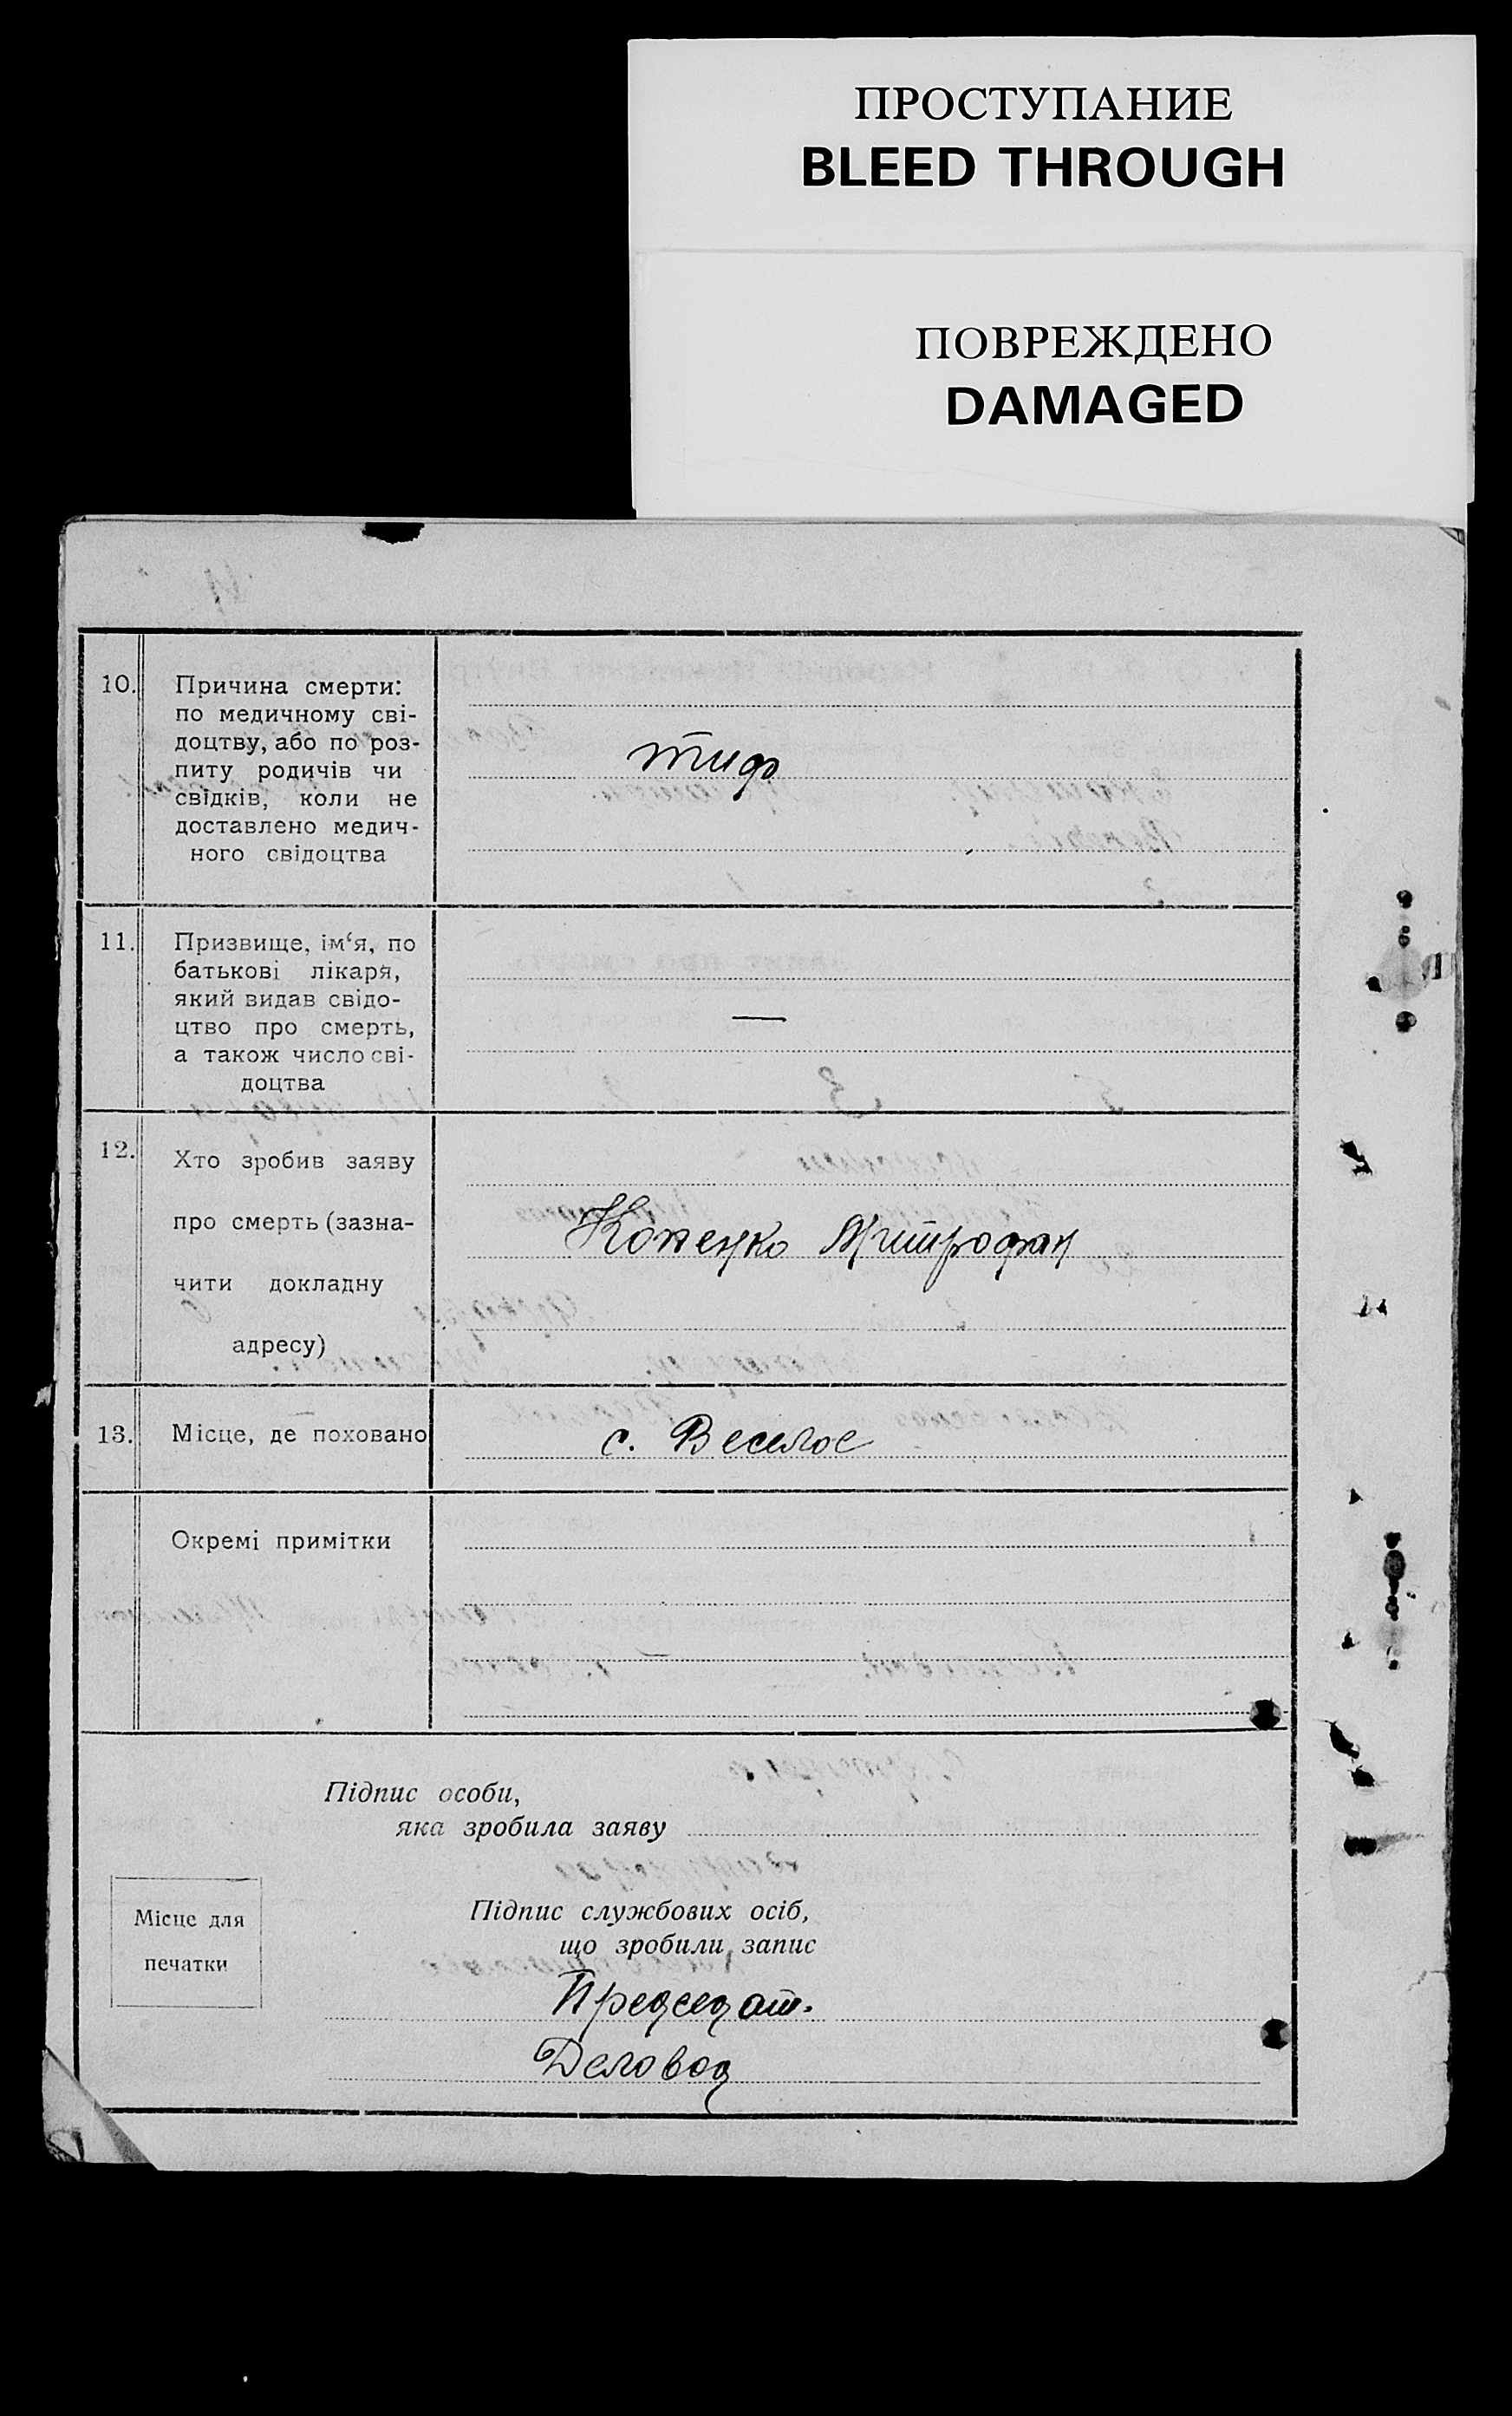 ПРОСТУПАНИЕ
BLEED THROUGH
ПОВРЕЖДЕНО
DAMAGED
10. Причина смерти:
по медичному сві-
доцтву, або по роз-
питу родичів чи
свідків, коли не
доставлено медич-
ного свідоцтва
тиф
11. Призвище, ім‘я, по
батькові лікаря,
який видав свідо-
цтво про смерть,
а також число сві-
доцтва
—
12. Хто зробив заяву
про смерть (зазна-
чити докладну
адресу)
Митрофан
13. Місце, де поховано
с. Веселое
Окремі примітки
Підпис особи,
яка зробила заяву
Місце для
печатки
Підпис службових осіб,
що зробили запис
Председат.
Деловод